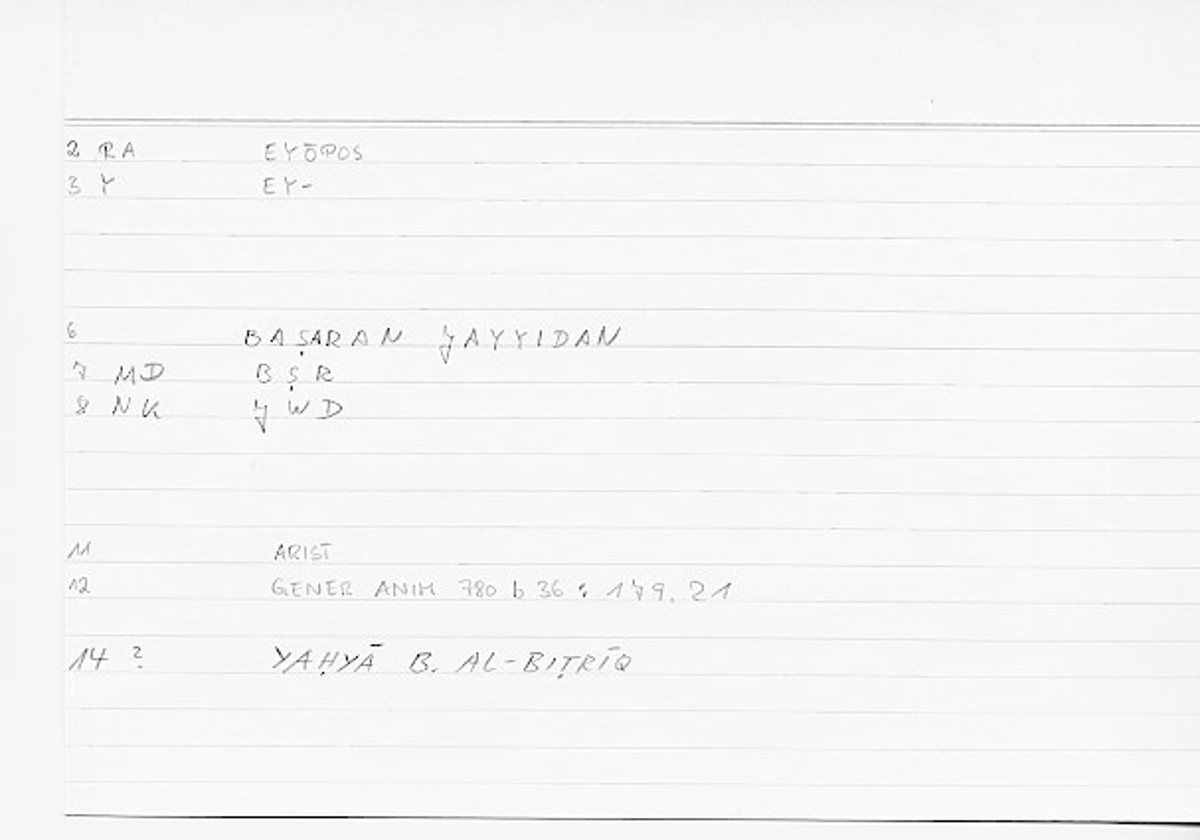 2 RA EYŌPOS
3 Y EY-
6 BAṢARAN JAYYIDAN
7 MD BṢR
8 NK JWD
11 ARIST
12 GENER ANIM 780 b 36 : 179. 21
14 ? YAḤYĀ B. AL-BIṬRĪQ